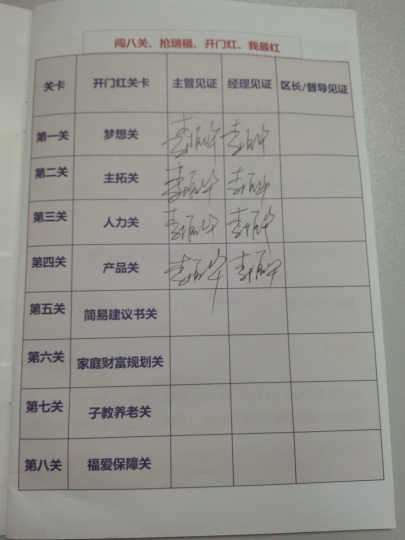 闯八关、抢瑞福、开门红、我最红
关卡 开门红关卡 主管见证 经理见证 区长/督导见证
第一关 梦想关
第二关 主拓关
第三关 人力关
第四关 产品关
第五关 简易建议书关
第六关 家庭财富规划关
第七关 子教养老关
第八关 福爱保障关